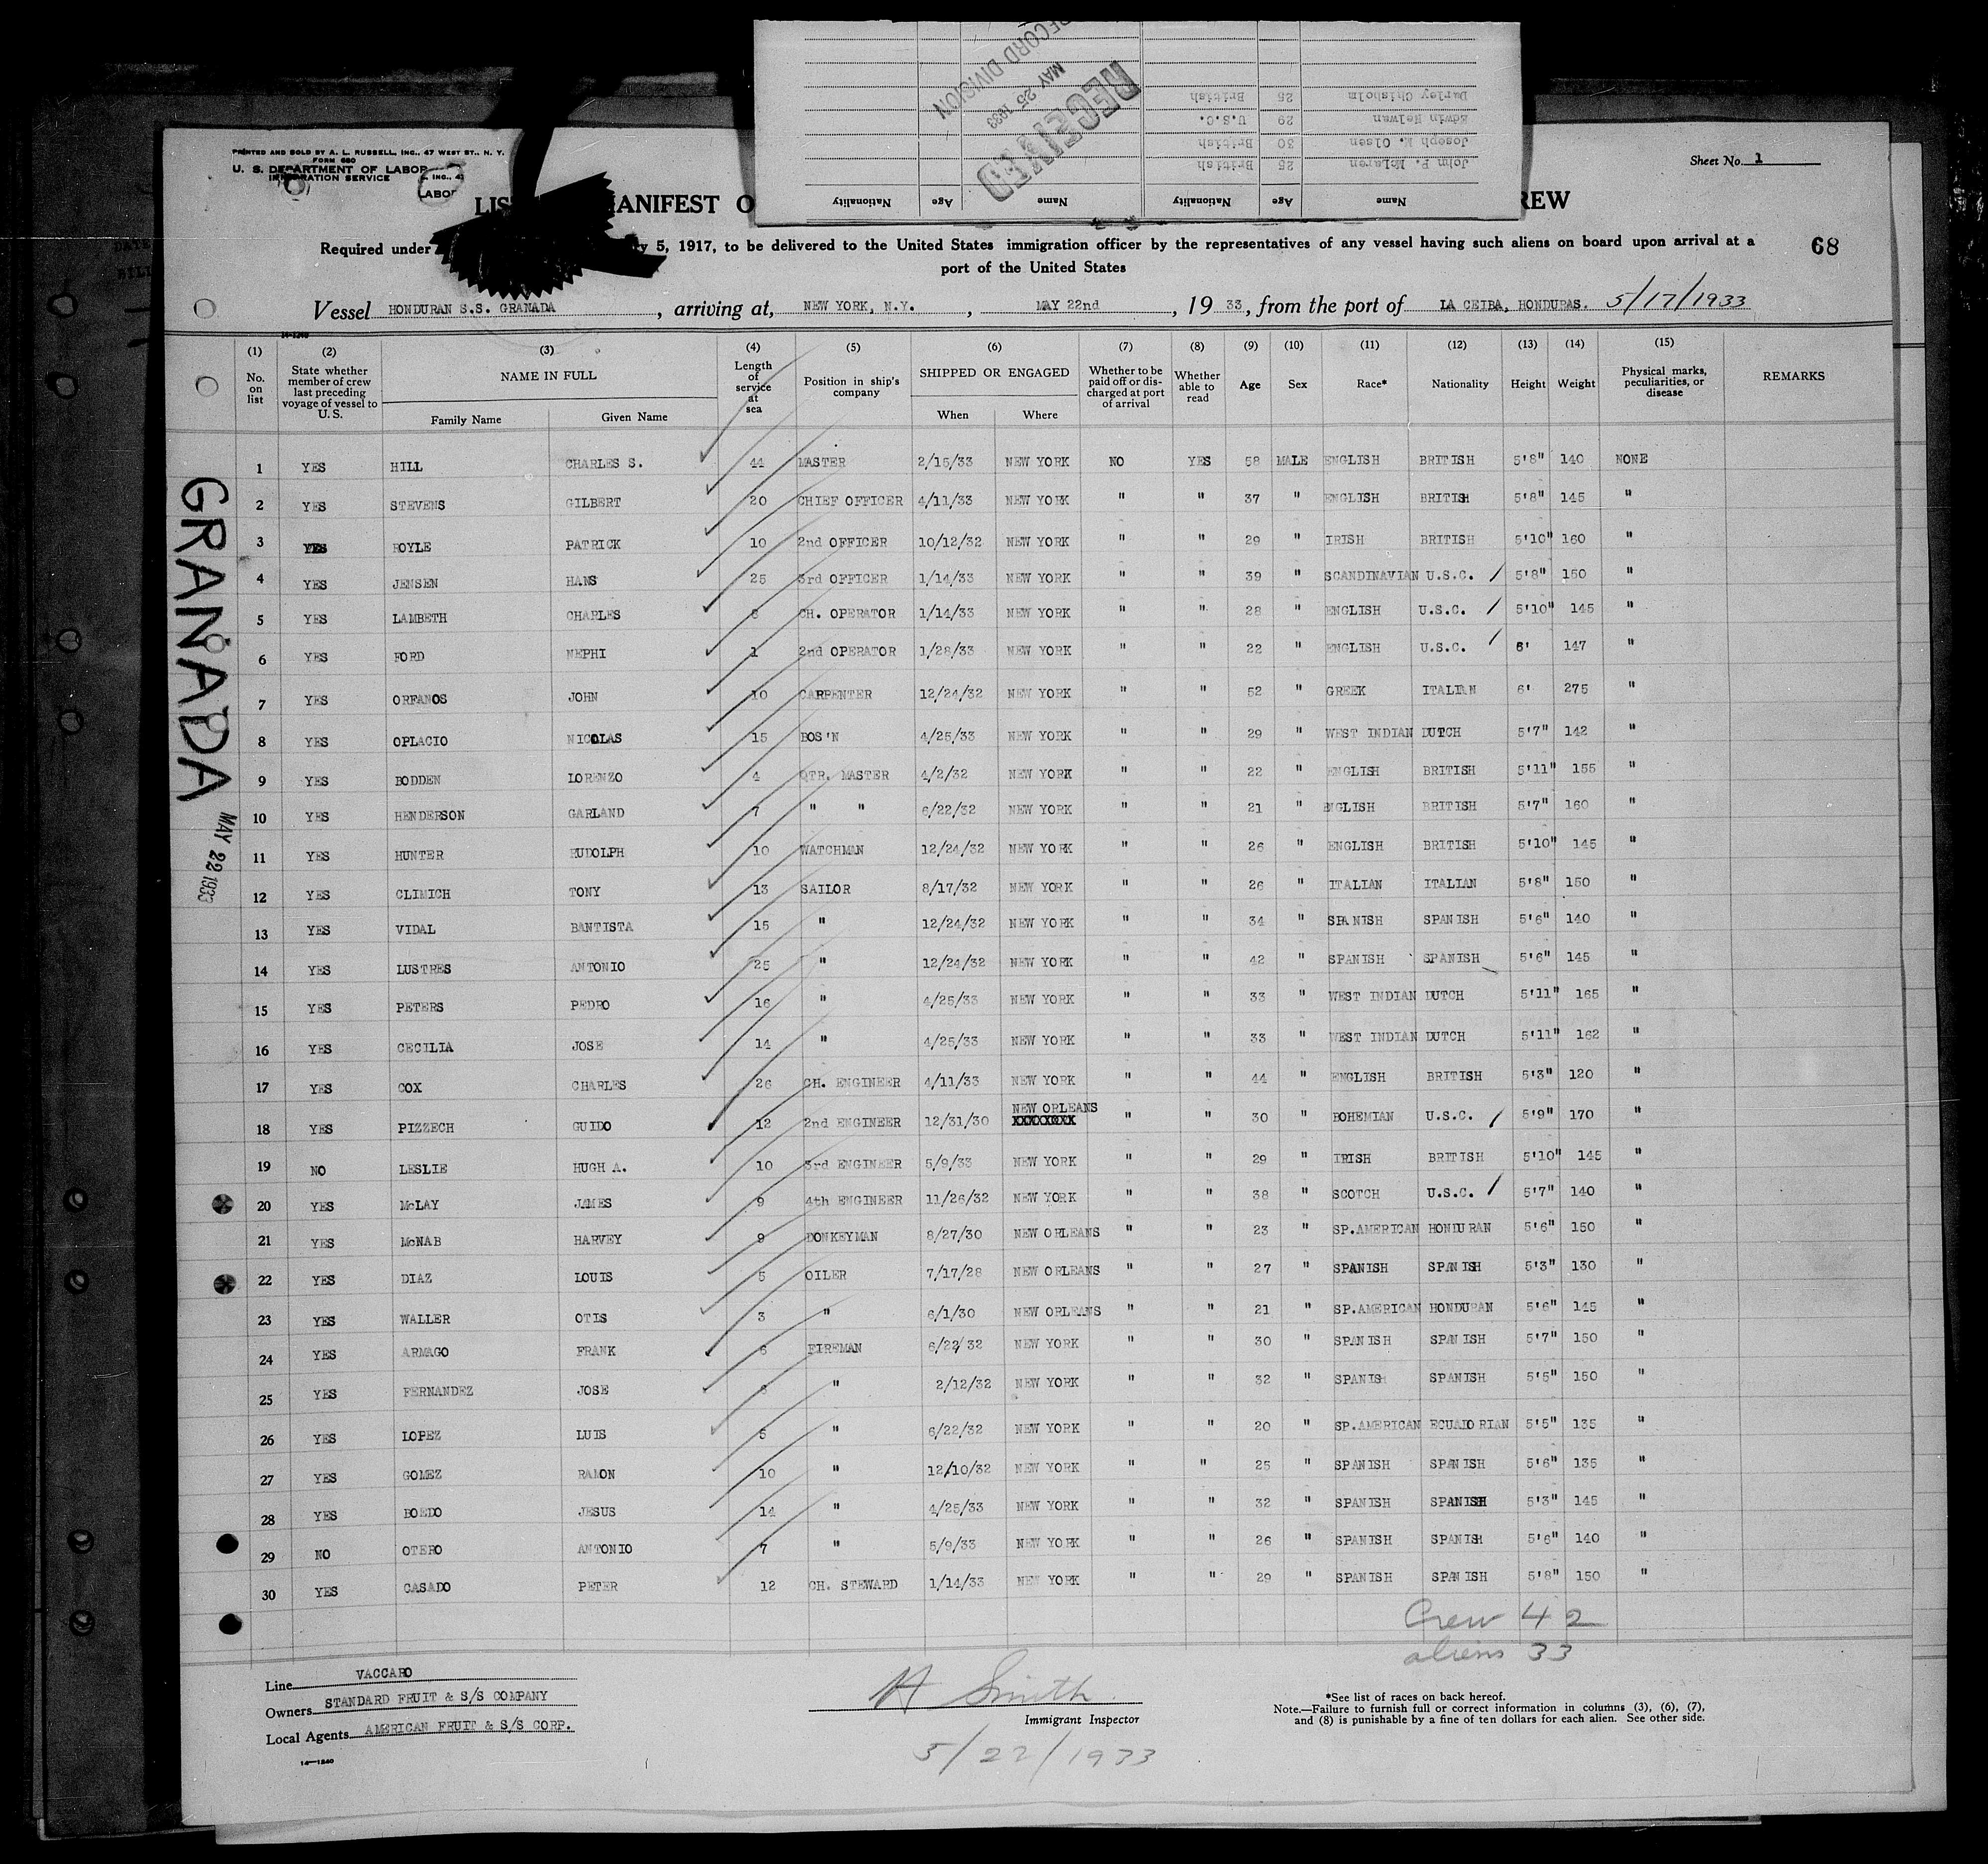 Name Age Nationality Name Age Nationality
John P. McLaren 25 British
Joseph M. Olsen 30 British
Edwin Helwan 29 U.S.C.
Durley Chisholm 25 British
RECEIVED
MAY 25 1933
RECORD DIVISION
PRINTED AND SOLD BY A. L. RUSSELL, INC., 47 WEST ST., N. Y.
FORM 680
U. S. DEPARTMENT OF LABOR
IMMIGRATION SERVICE
INC., 47
LABOR
Sheet No. 1
LIS ANIFEST O REW
Required under y 5, 1917, to be delivered to the United States immigration officer by the representatives of any vessel having such aliens on board upon arrival at a
port of the United States
68
Vessel HONDURAN S.S. GRANADA, arriving at, NEW YORK, N.Y., MAY 22nd, 19 33, from the port of LA CEIBA, HONDURAS. 5/17/1933
14-1240
(1) No. on list (2) State whether member of crew last preceding voyage of vessel to U.S. (3) NAME IN FULL Family Name Given Name (4) Length of service at sea (5) Position in ship's company (6) SHIPPED OR ENGAGED When Where (7) Whether to be paid off or discharged at port of arrival (8) Whether able to read (9) Age (10) Sex (11) Race* (12) Nationality (13) Height (14) Weight (15) Physical marks, peculiarities, or disease REMARKS
1 YES HILL CHARLES S. 44 MASTER 2/15/33 NEW YORK NO YES 58 MALE ENGLISH BRITISH 5'8" 140 NONE
2 YES STEVENS GILBERT 20 CHIEF OFFICER 4/11/33 NEW YORK " " 37 " ENGLISH BRITISH 5'8" 145 "
3 YES BOYLE PATRICK 10 2nd OFFICER 10/12/32 NEW YORK " " 29 " IRISH BRITISH 5'10" 160 "
4 YES JENSEN HANS 25 3rd OFFICER 1/14/33 NEW YORK " " 39 " SCANDINAVIAN U.S.C. 5'8" 150 "
5 YES LAMBETH CHARLES 8 CH. OPERATOR 1/14/33 NEW YORK " " 28 " ENGLISH U.S.C. 5'10" 145 "
6 YES FORD NEPHI 1 2nd OPERATOR 1/28/33 NEW YORK " " 22 " ENGLISH U.S.C. 6' 147 "
7 YES ORFANOS JOHN 10 CARPENTER 12/24/32 NEW YORK " " 52 " GREEK ITALIAN 6' 275 "
8 YES OPLACIO NICOLAS 15 BOS'N 4/25/33 NEW YORK " " 29 " WEST INDIAN DUTCH 5'7" 142 "
9 YES BODDEN LORENZO 4 QTR. MASTER 4/2/32 NEW YORK " " 22 " ENGLISH BRITISH 5'11" 155 "
10 YES HENDERSON GARLAND 7 " " 6/22/32 NEW YORK " " 21 " ENGLISH BRITISH 5'7" 160 "
11 YES HUNTER RUDOLPH 10 WATCHMAN 12/24/32 NEW YORK " " 26 " ENGLISH BRITISH 5'10" 145 "
12 YES CLIMICH TONY 13 SAILOR 8/17/32 NEW YORK " " 26 " ITALIAN ITALIAN 5'8" 150 "
13 YES VIDAL BANTISTA 15 " 12/24/32 NEW YORK " " 34 " SPANISH SPANISH 5'6" 140 "
14 YES LUSTRES ANTONIO 25 " 12/24/32 NEW YORK " " 42 " SPANISH SPANISH 5'6" 145 "
15 YES PETERS PEDRO 16 " 4/25/33 NEW YORK " " 33 " WEST INDIAN DUTCH 5'11" 165 "
16 YES CECILIA JOSE 14 " 4/25/33 NEW YORK " " 33 " WEST INDIAN DUTCH 5'11" 162 "
17 YES COX CHARLES 26 CH. ENGINEER 4/11/33 NEW YORK " " 44 " ENGLISH BRITISH 5'3" 120 "
18 YES PIZZECH GUIDO 12 2nd ENGINEER 12/31/30 NEW ORLEANS XXXXXXXX " " 30 " BOHEMIAN U.S.C. 5'9" 170 "
19 NO LESLIE HUGH A. 10 3rd ENGINEER 5/9/33 NEW YORK " " 29 " IRISH BRITISH 5'10" 145 "
20 YES McLAY JAMES 9 4th ENGINEER 11/26/32 NEW YORK " " 38 " SCOTCH U.S.C. 5'7" 140 "
21 YES McNAB HARVEY 9 DONKEYMAN 8/27/30 NEW ORLEANS " " 23 " SP.AMERICAN HONDURAN 5'6" 150 "
22 YES DIAZ LOUIS 5 OILER 7/17/28 NEW ORLEANS " " 27 " SPANISH SPANISH 5'3" 130 "
23 YES WALLER OTIS 3 " 6/1/30 NEW ORLEANS " " 21 " SP.AMERICAN HONDURAN 5'6" 145 "
24 YES ARMAGO FRANK 6 FIREMAN 6/22/32 NEW YORK " " 30 " SPANISH SPANISH 5'7" 150 "
25 YES FERNANDEZ JOSE 8 " 2/12/32 NEW YORK " " 32 " SPANISH SPANISH 5'5" 150 "
26 YES LOPEZ LUIS 5 " 6/22/32 NEW YORK " " 20 " SP.AMERICAN ECUADORIAN 5'5" 135 "
27 YES GOMEZ RAMON 10 " 12/10/32 NEW YORK " " 25 " SPANISH SPANISH 5'6" 135 "
28 YES BOEDO JESUS 14 " 4/25/33 NEW YORK " " 32 " SPANISH SPANISH 5'3" 145 "
29 NO OTERO ANTONIO 7 " 5/9/33 NEW YORK " " 26 " SPANISH SPANISH 5'6" 140 "
30 YES CASADO PETER 12 CH. STEWARD 1/14/33 NEW YORK " " 29 " SPANISH SPANISH 5'8" 150 "
GRANADA
MAY 22 1933
Crew 42
aliens 33
Line VACCARO
Owners STANDARD FRUIT & S/S COMPANY
Local Agents AMERICAN FRUIT & S/S CORP.
14-1240
H Smith
Immigrant Inspector
5/22/1933
*See list of races on back hereof.
Note.—Failure to furnish full or correct information in columns (3), (6), (7),
and (8) is punishable by a fine of ten dollars for each alien. See other side.